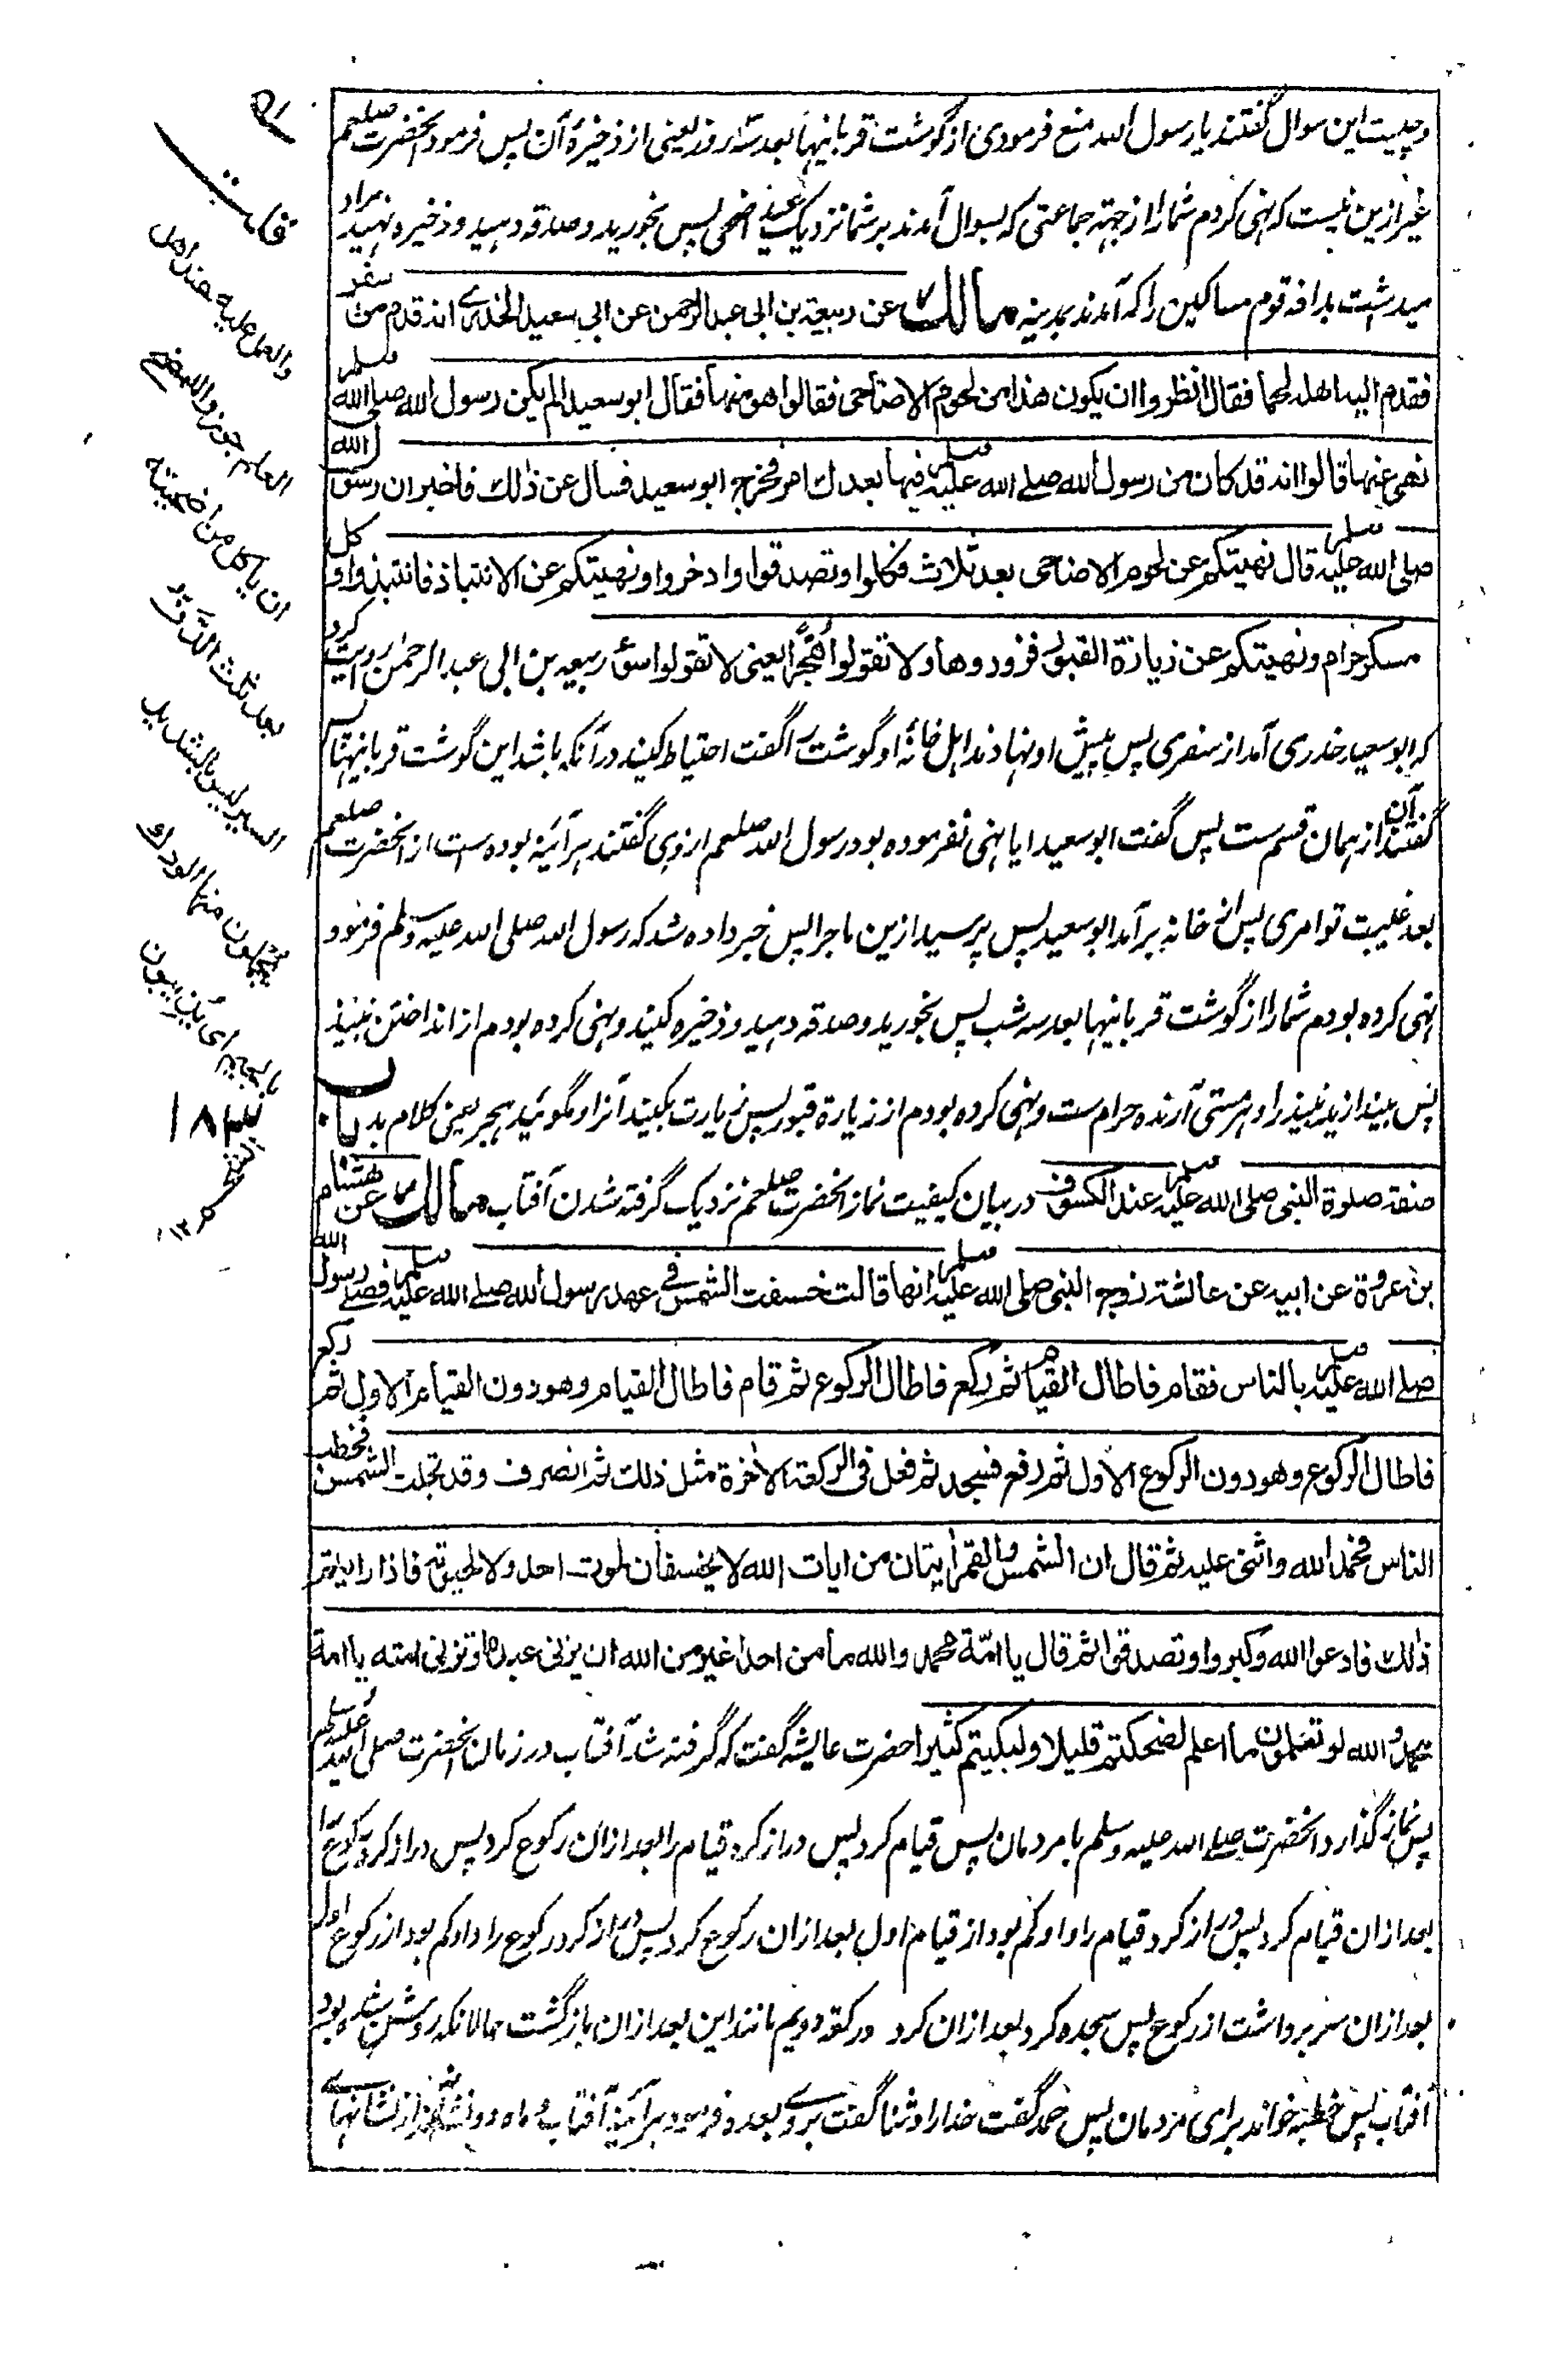 وچیست این سوال گفتند یا رسول الله منع فرمودی از گوشت قربانیها بعد سه روز یعنی از ذخیرهٔ آن پس فرمود آنحضرت صلعم
غیر ازین نیست که نهی کردم شما را از جهة جماعتی که بسوال آمدند بر شما نزدیک عید اضحی پس بخورید و صدقه دهید و ذخیره نهید مراد
میداشت بدافه قوم مساکین را که آمدند بمدینه مالك عن ربیعة بن ابی عبد الرحمن عن ابی سعید الخدری انه قدم من سفر
فقدم الیه اهله لحما فقال انظروا ان یکون هذا من لحوم الاضاحی فقالوا هو منها فقال ابو سعید الم یکن رسول الله صلی الله علیه وسلم
نهی عنها قالوا انه قد کان من رسول الله صلے الله علیه وسلم فیها بعدك امر فخرج ابو سعید فسال عن ذٰلك فاخبر ان رسول الله
صلی الله علیه وسلم قال نهیتکم عن لحوم الاضاحی بعد ثلاث فکلوا وتصدقوا وادخروا ونهیتکم عن الانتباذ فانتبذوا وکل
مسکر حرام ونهیتکم عن زیارة القبور فزوروها ولا تقولوا هُجْرًا یعنی لا تقولوا سوء ربیعه بن ابی عبد الرحمٰن روایت کرد
که ابو سعید خدری آمد از سفری پس پیش او نهادند اهل خانهٔ او گوشت را گفت احتیاط کنید در آنکه باشد این گوشت قربانیها پس
گفتند آن از همان قسم ست پس گفت ابو سعید ایا نهی نفرموده بود رسول الله صلعم ازوی گفتند هر آئینه بوده است از آنحضرت صلعم
بعد غیبت تو امری پس از خانه برآمد ابو سعید پس پرسید ازین ماجرا پس خبر داده شد که رسول الله صلی الله علیه وسلم فرمود
نهی کرده بودم شما را از گوشت قربانیها بعد سه شب پس بخورید و صدقه دهید و ذخیره کنید و نهی کرده بودم از انداختن نبیذ
پس بیندازید نبیذ را و هر مستی آرنده حرام ست و نهی کرده بودم از زیارة قبور پس زیارت بکنید آنرا و مگوئید هجر یعنی کلام بد باب
صفة صلوة النبی صلی الله علیه وسلم عند الکسوف در بیان کیفیت نماز آنحضرت صلعم نزدیک گرفته شدن آفتاب مالك عن هشام
بن عروة عن ابیه عن عائشة زوج النبی صلی الله علیه وسلم انها قالت خسفت الشمس فی عهد رسول الله صلے الله علیه وسلم فصلے رسول الله
صلے الله علیه وسلم بالناس فقام فاطال القیام ثم رکع فاطال الرکوع ثم قام فاطال القیام وهو دون القیام الاول ثم رکع
فاطال الرکوع وهو دون الرکوع الاول ثم رفع فسجد ثم فعل فی الرکعة الاٰخرة مثل ذلك ثم انصرف وقد تجلت الشمس فخطب
الناس فحمد الله واثنی علیه ثم قال ان الشمس والقمر اٰیتان من اٰیات الله لا یخسفان لموت احد ولا لحیوته فاذا رایتم
ذٰلك فادعوا الله وکبروا وتصدقوا ثم قال یا امّة محمد والله ما من احد اغیر من الله ان یزنی عبده او تزنی امته یا امة
محمد والله لو تعلمون ما اعلم لضحکتم قلیلا ولبکیتم کثیرا حضرت عایشه گفت که گرفته شد آفتاب در زمان آنحضرت صلی الله علیه وسلم
پس نماز گذارد آنحضرت صلے الله علیه وسلم با مردمان پس قیام کرد پس دراز کرد قیام را بعد ازان رکوع کرد پس دراز کرد رکوع را
بعد ازان قیام کرد پس دراز کرد قیام را و او کم بود از قیام اول بعد ازان رکوع کرد پس دراز کرد رکوع را و او کم بود از رکوع اول
بعد ازان سر برداشت از رکوع پس سجده کرد بعد ازان کرد در رکعة دویم مانند این بعد ازان بازگشت حالانکه روشن شده بود
آفتاب پس خطبه خواند برای مردمان پس حمد گفت خدا را و ثنا گفت بر وے بعده فرمود هر آئینه آفتاب و ماه دو نشانه از نشانهاے
قلت
والعمل علیه عند اهل
العلم جوزوا للمضحی
ان یاکل من اضحیته
بعد ثلث